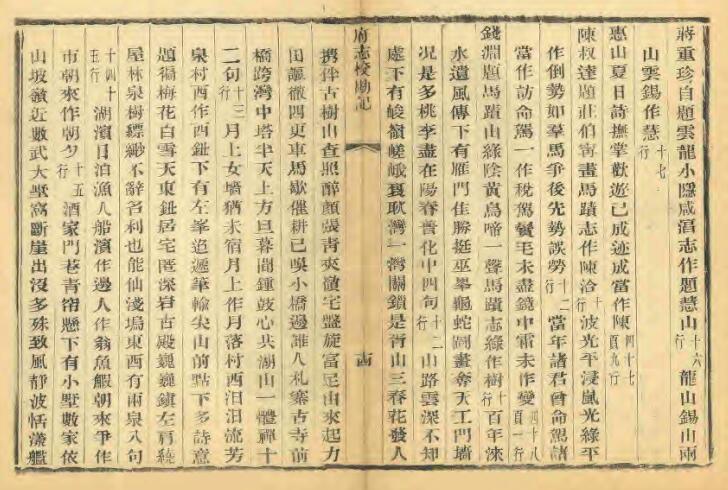 蔣重珍自題雲龍小隱咸淳志作題慧山十六行 龍山錫山兩
山雲錫作慧十七行
惠山夏日詩撫掌歡遊已成迹成當作陳四十七頁九行
陳叔達題莊伯甯畫馬蹟志作陳洽十行 波光平浸嵐光綠平
作倒勢如羣馬爭後先勢誤勞十二行 當年諸君會命駕諸
當作訪命駕一作稅駕鬢毛未盡錢中雷未作變四十八頁一行
錢淵題馬蹟山綠陰黃鳥啼一聲馬蹟志綠作樹十行 百年淶
水遺風傳下有雁門佳勝挺巫峯龜蛇圖畫奪天工門墻
况是多桃李盡在陽春普化中四句十二行 山路雲深不知
處下有峻嶺嵯峨裏耿灣一灣關鎖是靑山三春花發人
府志校勘記
携伴古樹山查照醉顏張靑夾嶺宅盤旋富足山來起力
田讴徹四更車馬歇催耕已唤小橋邊誰人札寨古寺前
橋跨灣中塔半天上方旦暮聞鍾鼓心共湖山一體禪十
二句十三行 月上女墻猶未宿月上作月落村西汨汨流芳
泉村西作西鈕下有左峯迢遞筆輸尖山前點下多詩意
題徧梅花白雪天東鈕居宅匿深岩古殿巍巍鎮左肩繞
屋林泉樹縹緲不辭名利也能仙淺塢東西有兩泉八句
十四十五行 湖濱日泊漁人船濱作邊人作翁魚鰕朝來爭作
市朝來作朝夕十五行 酒家門巷靑帘懸下有小墅數家依
山坡嶺近數武大墅窩斷崖出沒多殊致風靜波恬漾艦